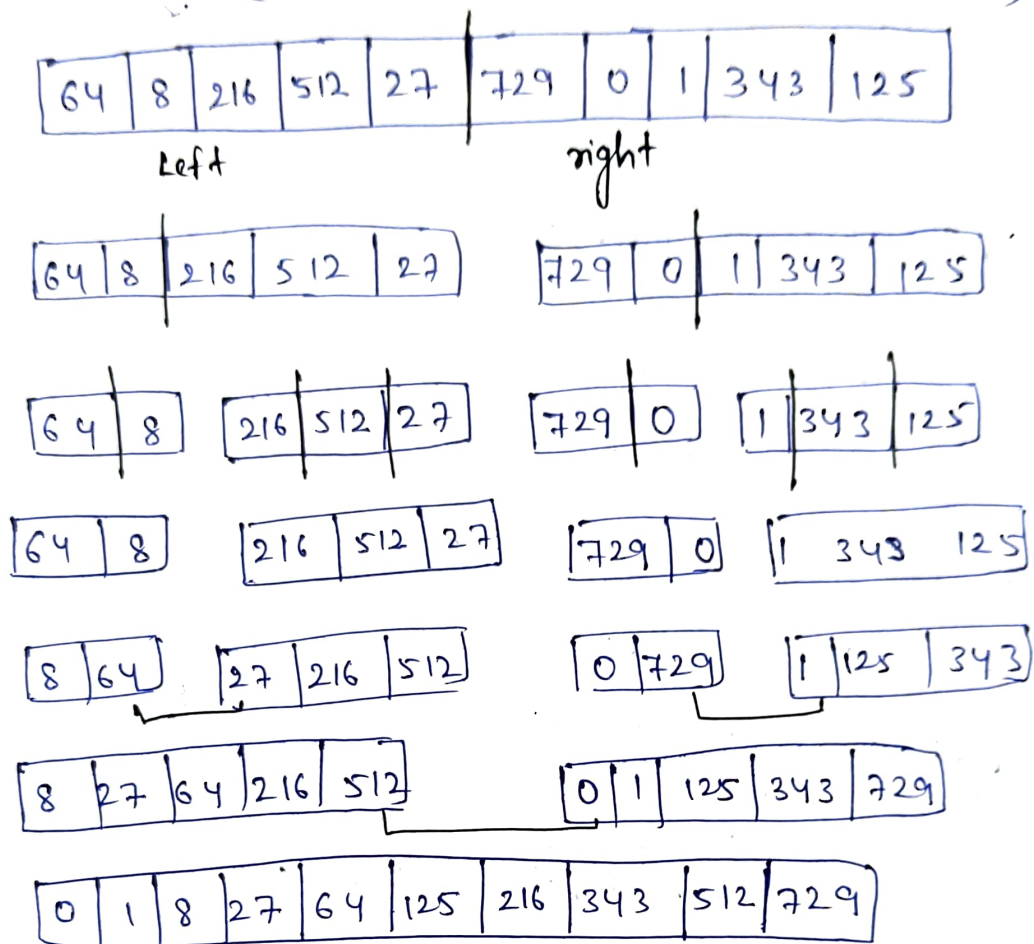 64 8 216 512 27 729 0 1 343 125
Left right
64 8 216 512 27 729 0 1 343 125
64 8 216 512 27 729 0 1 343 125
64 8 216 512 27 729 0 1 343 125
8 64 27 216 512 0 729 1 125 343
8 27 64 216 512 0 1 125 343 729
0 1 8 27 64 125 216 343 512 729